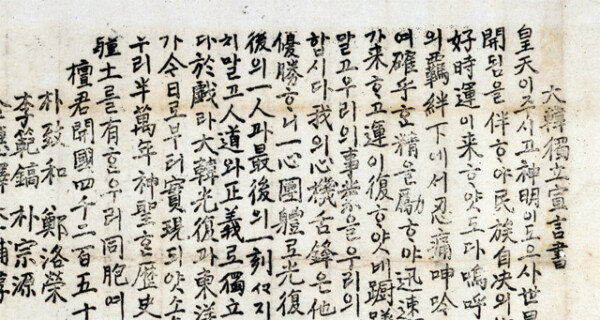 大韓獨立宣言書
皇天이주시고神明이도으사世界
開됨을伴하야民族自決의
好時運이来하얏도다嗚呼
의羈絆下에서忍痛呻吟
여確乎한精을勵하야迅速
가来하고運이復하얏네躊躇
말고우리의事業을우리의
합시다我의心機舌鋒은他
優勝하니一心團體로光復
後의一人과最後의一刻
치말고人道와正義로獨立
다於戱라大韓光復과東洋
가今日로부터實現되얏소
우리半萬年神聖한歷史
疆土를有한우리同胞여
檀君開國四千二百五十
朴致和 鄭洛榮
李範鎬 朴宗源